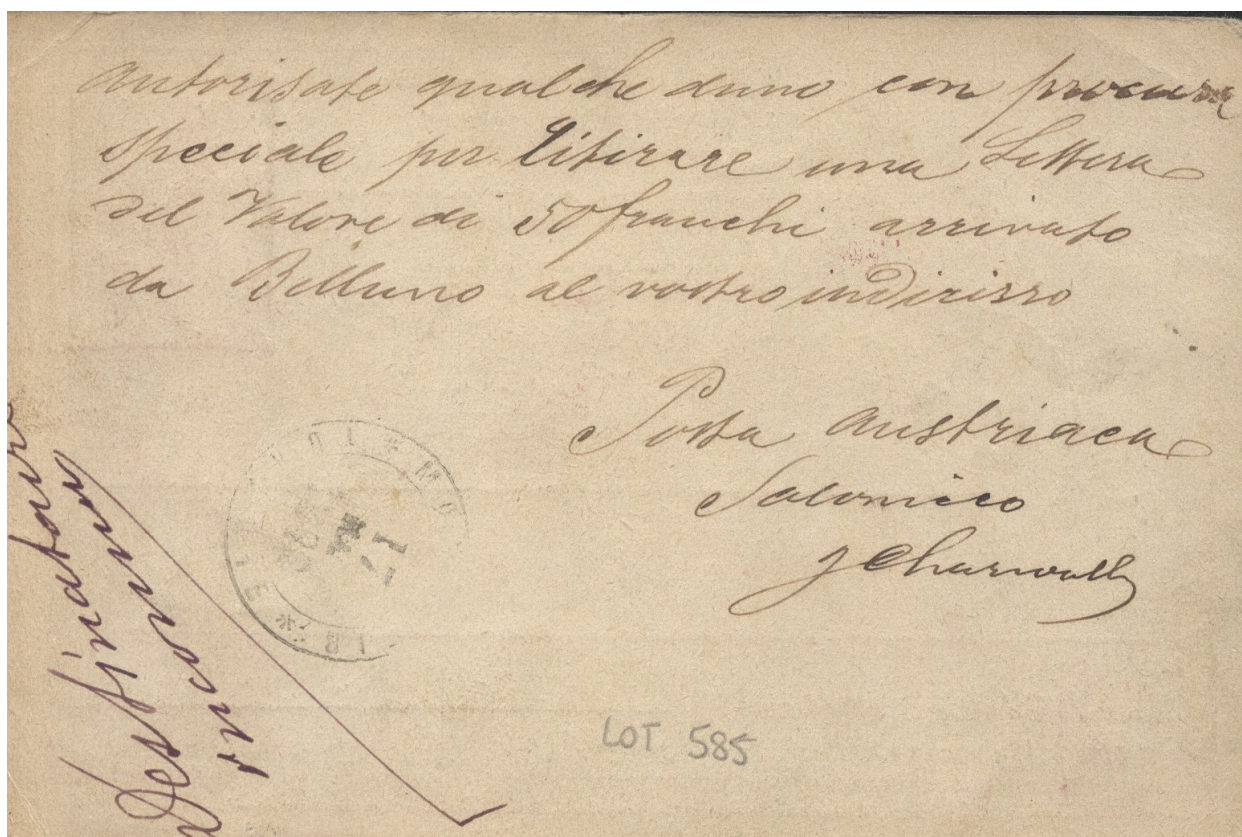 autorisate qualche duno con procura
speciale per litirare una Lettera
del Valore di 50 franchi arrivato
da Belluno al vostro indirisso
Posta austriaca
Salonicco
Destinatario
LOT 585